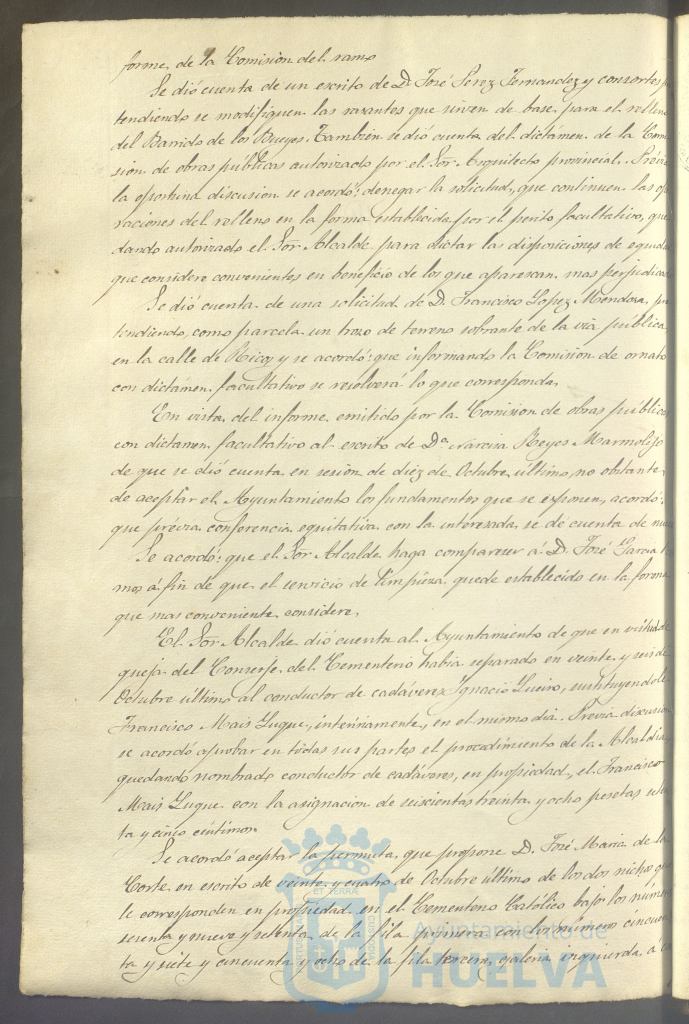 forme de la Comisión del ramo
Se dió cuenta de un escrito de D. José Perez Fernandez y consortes
tendiendo se modifiquen las rasantes que sirven de base para el relleno
del Barrido de los Bueyes. También se dió cuenta del dictamen de la Comi
sion de obras públicas autorizado por el Sor. Arquitecto provincial. Prévia
la oportuna discusion se acordó: denegar la solicitud, que continuen las ope
raciones del relleno en la forma establecida por el perito facultativo, que
dando autorizado el Sor. Alcalde para dictar las disposiciones de equidad
que considere convenientes en beneficio de los que aparescan mas perjudica
Se dió cuenta de una solicitud de D. Francisco Lopez Mendoza, pre
tendiendo, como parcela un trozo de terreno sobrante de la via pública
en la calle de Rico, y se acordó: que informando la Comision de ornato
con dictámen facultativo se resolverá lo que corresponda.
En vista del informe emitido por la Comision de obras públicas
con dictamen facultativo al escrito de Da. Narcisa Reyes Marmolejo
de que se dió cuenta en sesión de diez de Octubre último, no obstante
de aceptar el Ayuntamiento los fundamentos que se exponen, acordó:
que prévia conferencia equitativa con la interesada, se dé cuenta de nue
Se acordó: que el Sor. Alcalde haga comparecer á D. José Garcia
mos á fin de que el servicio de limpieza quede establecido en la forma
que mas conveniente considere.
El Sor. Alcalde dió cuenta al Ayuntamiento de que en virtud de
queja del Conserje del Cementerio habia separado en veinte y seis de
Octubre último al conductor de cadáveres Ignacio Sueiro, sustituyendole
Francisco Mais Luque, interinamente, en el mismo dia. Prévia discusion
se acordó aprobar en todas sus partes el procedimiento de la Alcaldia,
quedando nombrado conductor de cadáveres, en propiedad, el Francisco
Mais Luque con la asignacion de seiscientas treinta y ocho pesetas seten
ta y cinco céntimos.
Se acordó aceptar la permuta, que propone D. José Maria de la
Corte, en escrito de veinte y cuatro de Octubre último de los dos nichos que
le corresponden en propiedad en el Cementerio Católico bajo los números
sesenta y nueve y setenta de la fila primera con los números cincuen
ta y siete y cincuenta y ocho de la fila tercera, galeria izquierda, á
ET TERRA
Ayuntamiento de
HUELVA